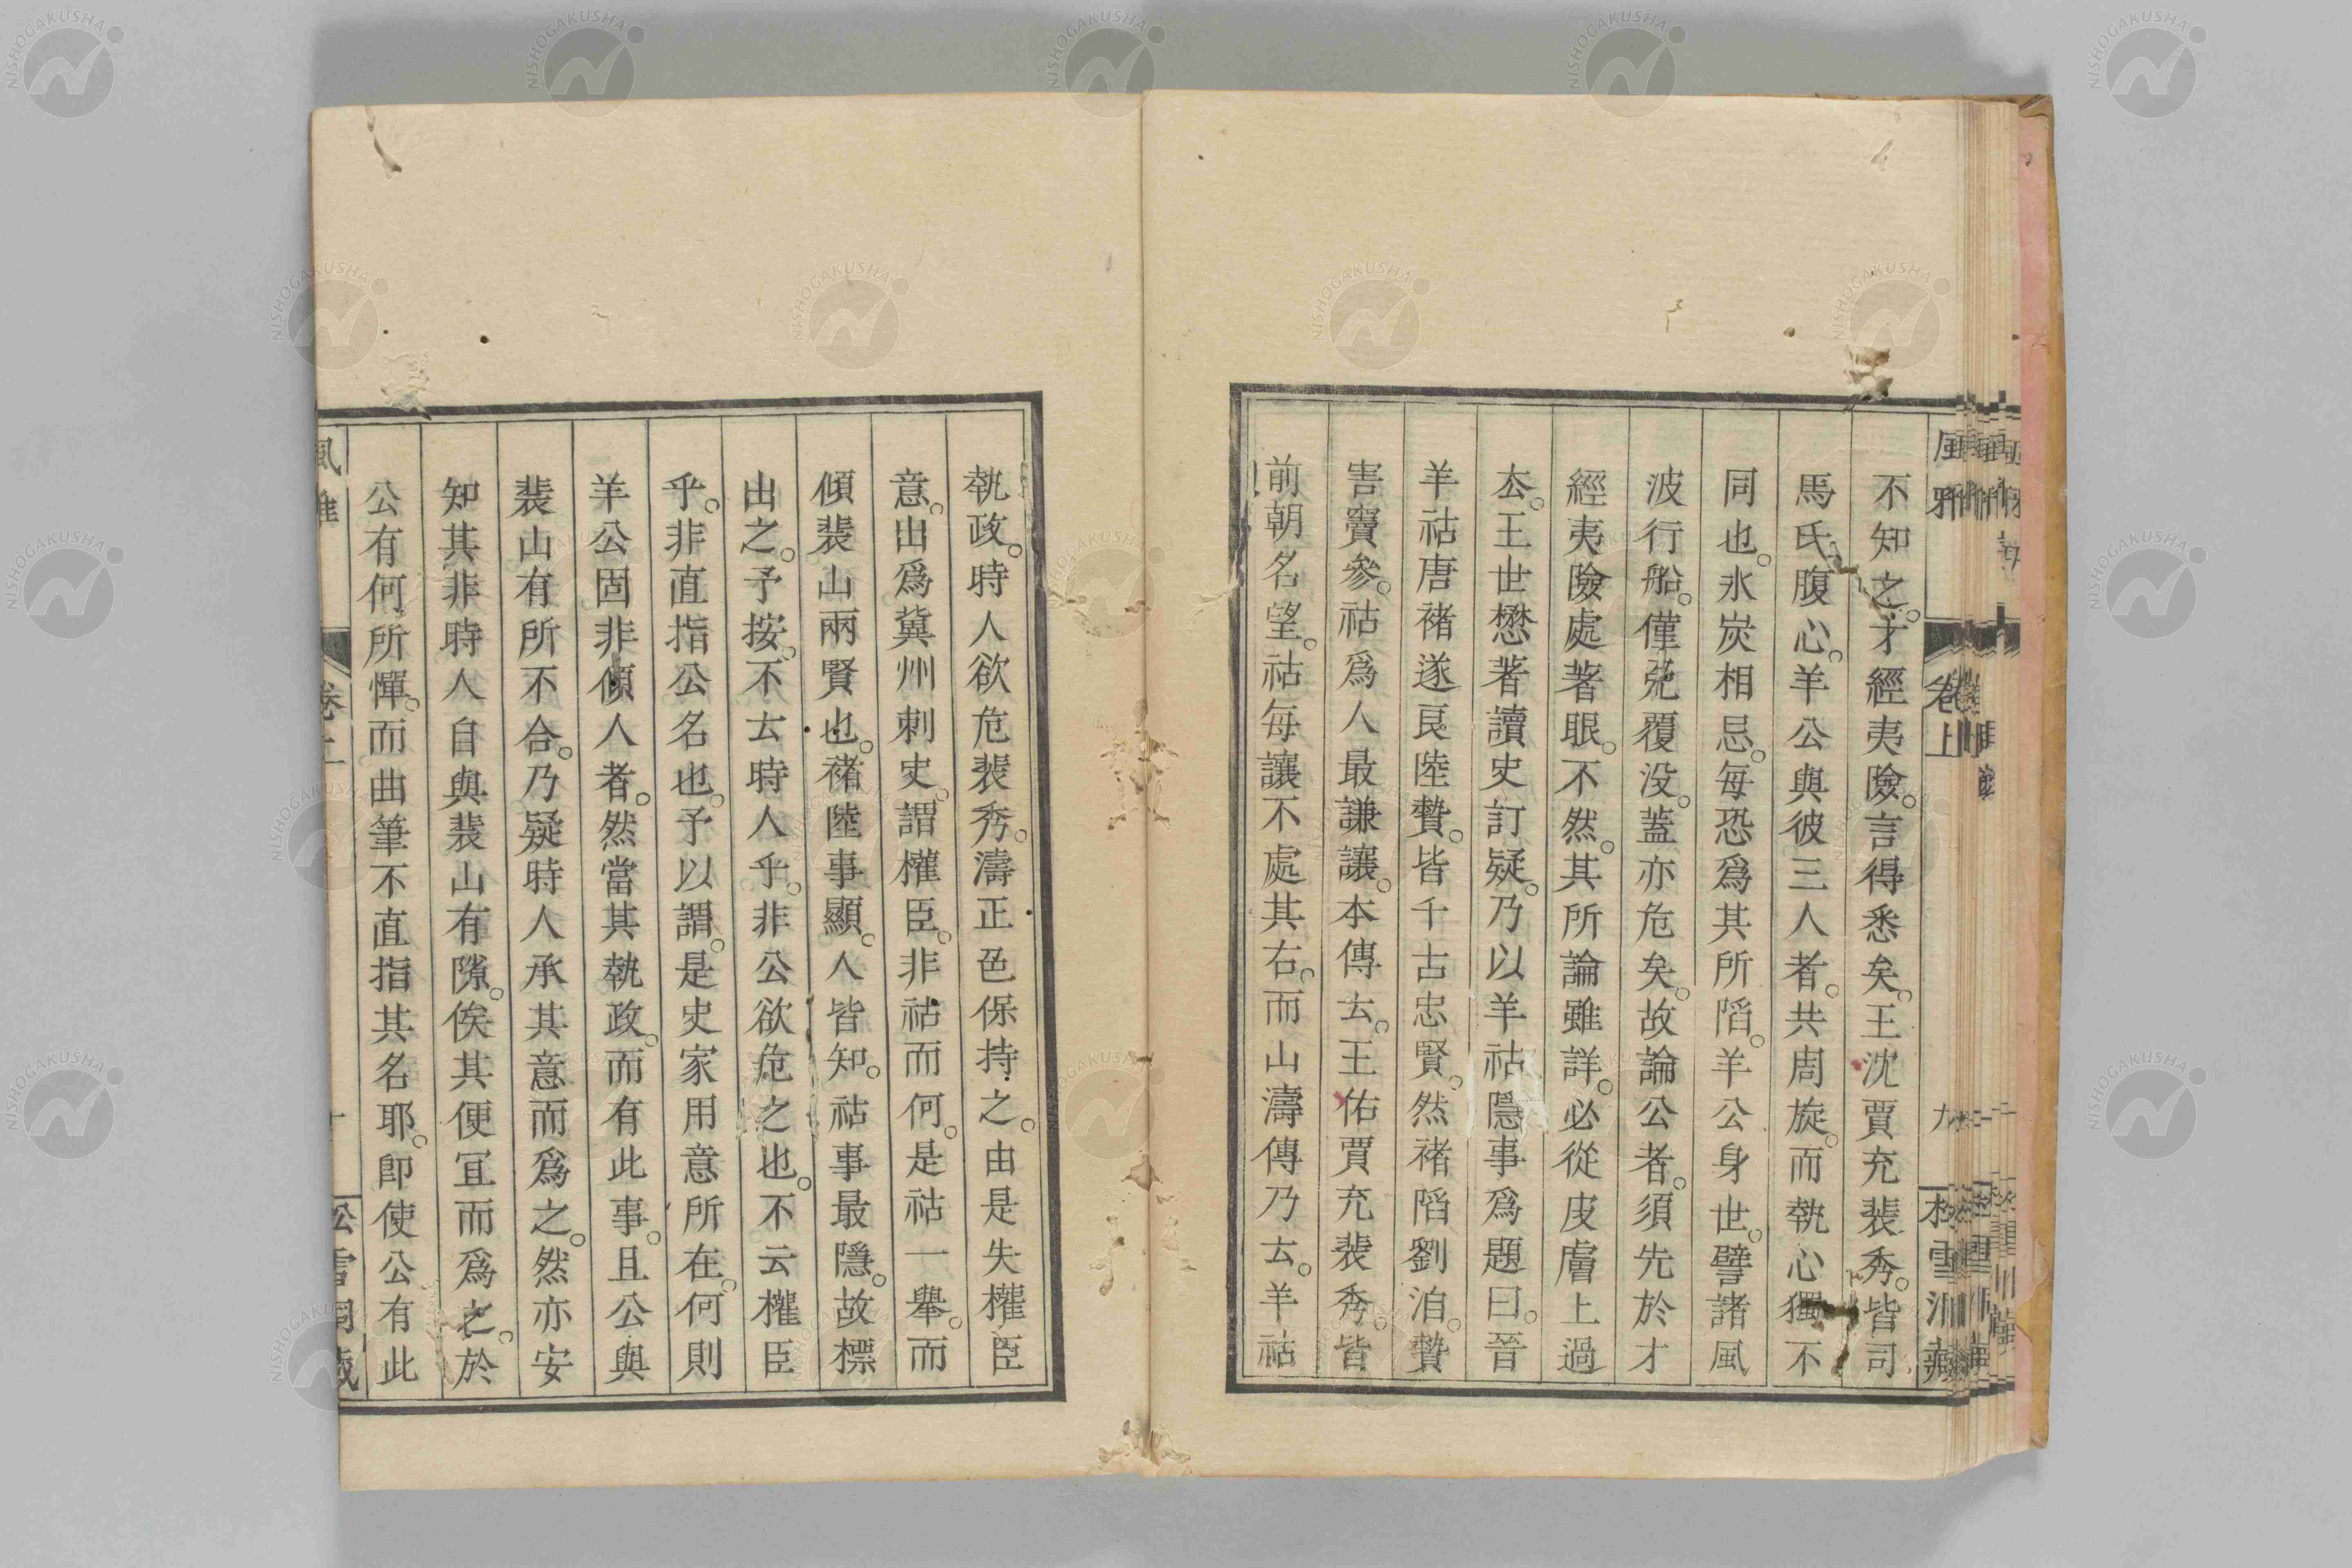 不知之。才經夷險。言得悉矣。王沈賈充裴秀。皆司
馬氏腹心。羊公與彼三人者。共周旋。而執心獨不
同也。氷炭相忌。每恐爲其所陷。羊公身世。譬諸風
波行船。僅免覆没。蓋亦危矣。故論公者。須先於才
經夷險處著眼。不然。其所論雖詳。必從皮膚上過
厺。王世懋著讀史訂疑。乃以羊祜隱事爲題曰。晉
羊祜唐褚遂良陸贄。皆千古忠賢。然褚陷劉洎。贄
害竇參。祜爲人最謙讓。本傳云。王佑賈充裴秀。皆
前朝名望。祜每讓不處其右。而山濤傳乃云。羊祜
執政。時人欲危裴秀。濤正色保持之。由是失權臣
意。出爲冀州刺史。謂權臣。非祜而何。是祜一舉。而
傾裴山兩賢也。褚陸事顯。人皆知。祜事最隱。故標
出之。予按。不云時人乎。非公欲危之也。不云權臣
乎。非直指公名也。予以謂。是史家用意所在。何則
羊公固非傾人者。然當其執政。而有此事。且公與
裴山有所不合。乃疑時人承其意而爲之。然亦安
知其非時人自與裴山有隙。俟其便宜而爲之。於
公有何所憚。而曲筆不直指其名耶。卽使公有此
風雅
卷上
九
NISHOGAKUSHA